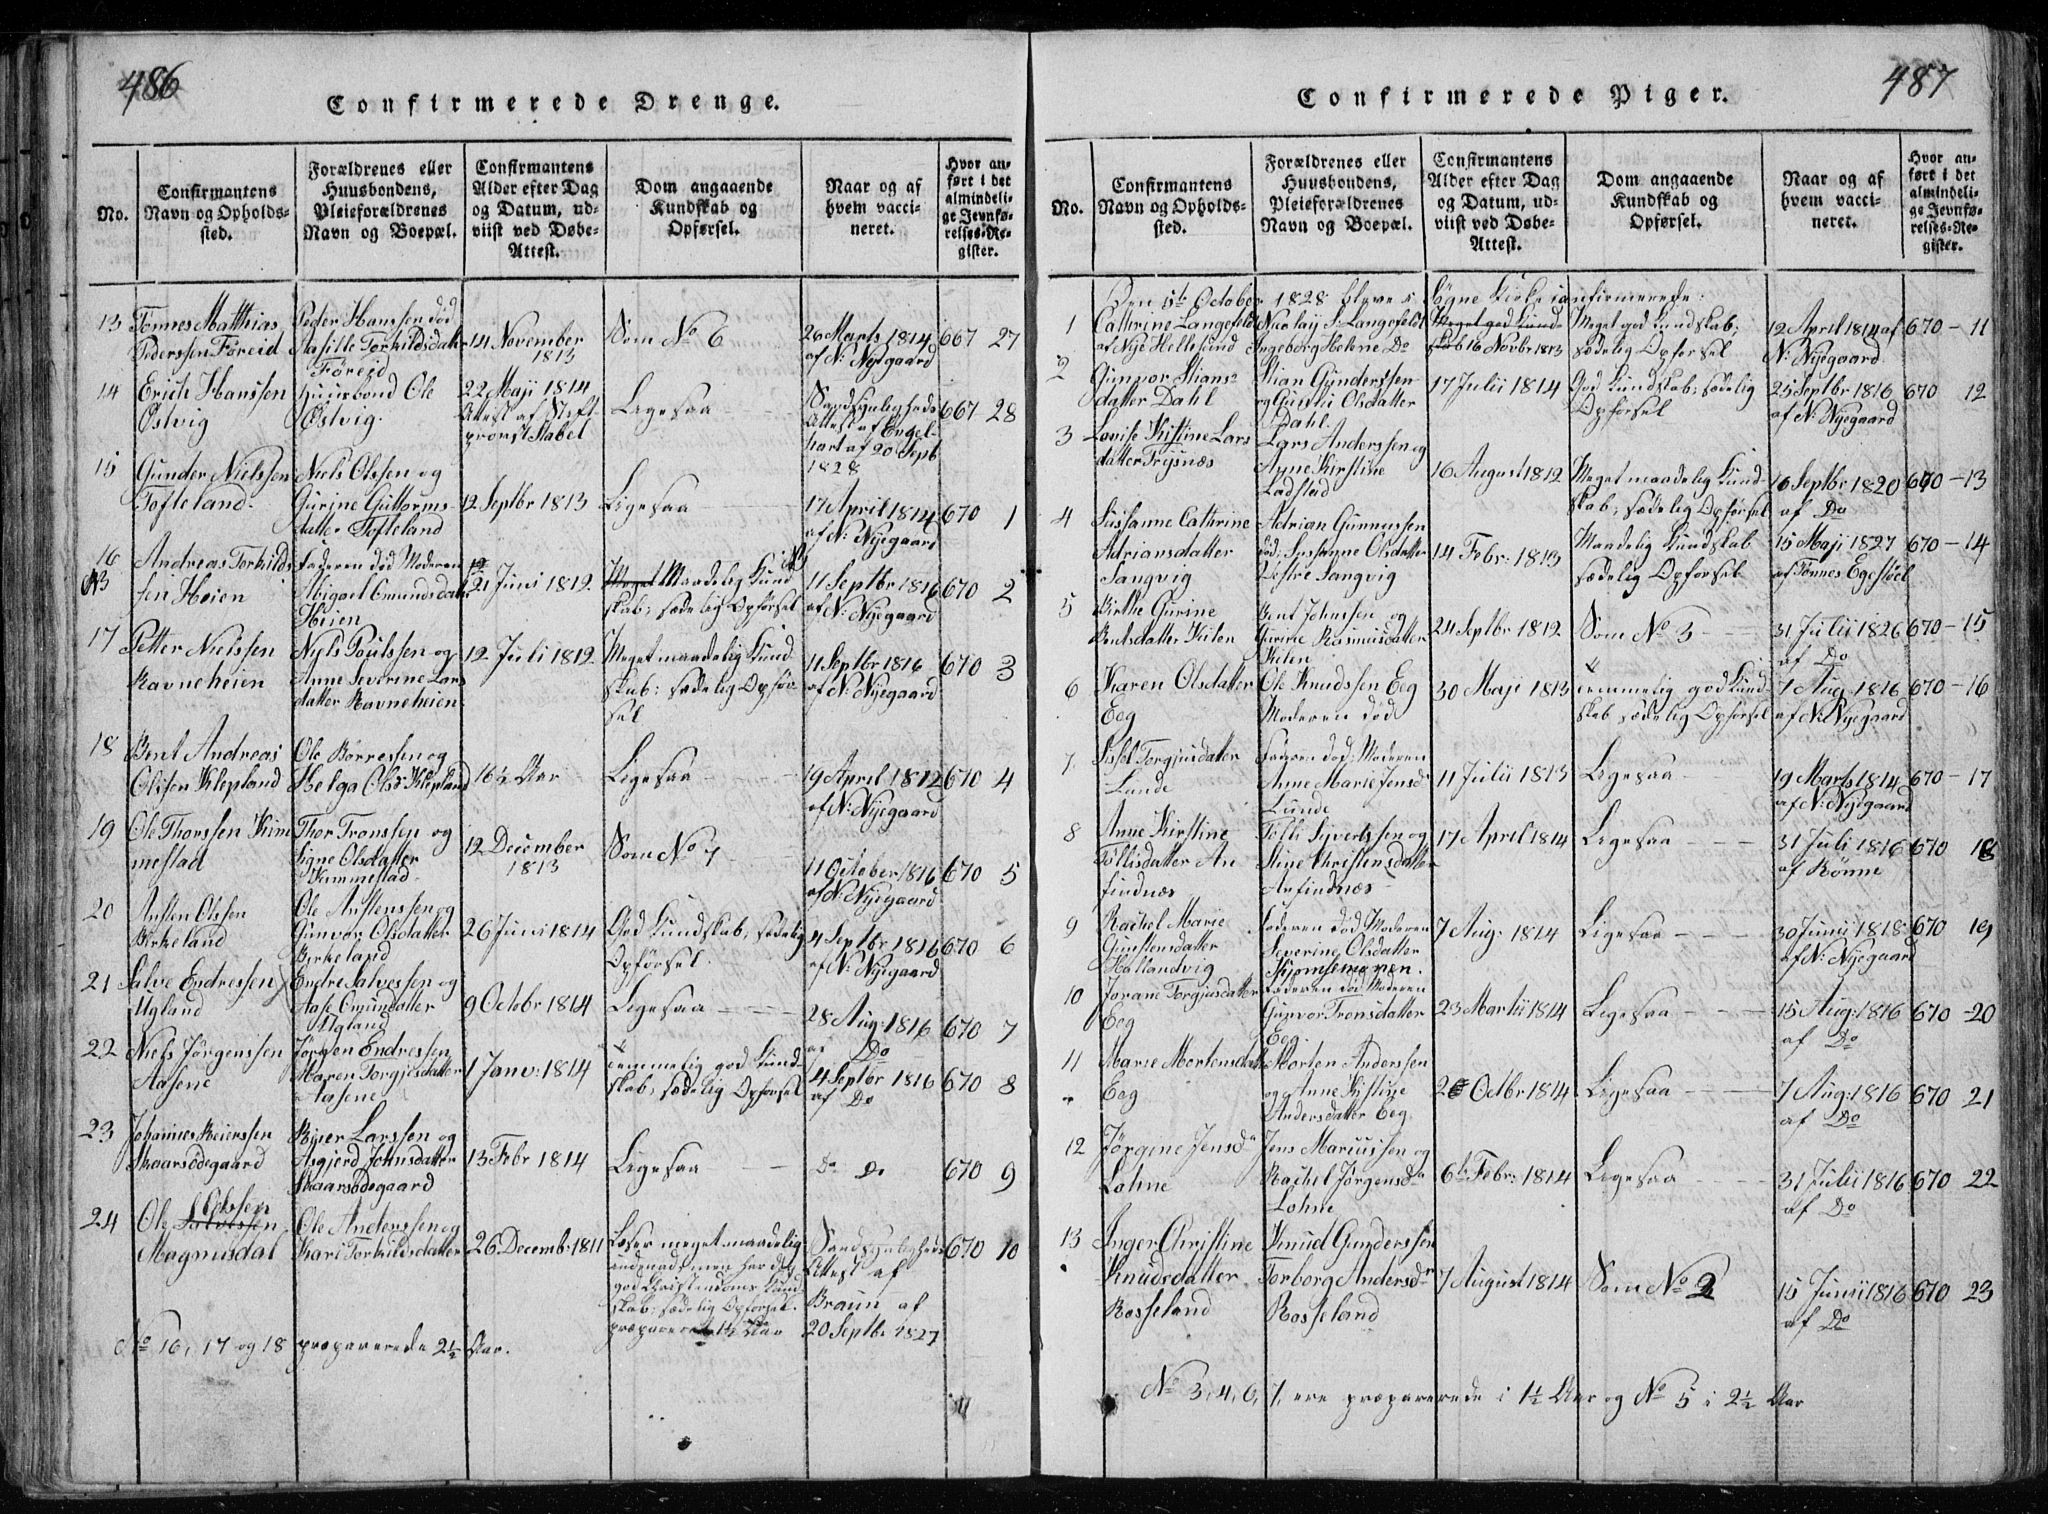 486
Confirmerede Drenge.
No.
Confirmantens Navn og Opholds-sted.
Forældrenes eller Huusbondens, Pleieforældrenes Navn og Boepæl.
Confirmantens Alder efter Dag og Datum, ud-viist ved Døbe-Attest.
Dom angaaende Kundskab og Opførsel.
Naar og af hvem vacci-neret.
Hvor an-ført i det almindeli-ge Jevnfø-relses-Re-gister.
13 Tønnes Matthias Pederssen Föreid
Peder Hanssen død Aasille Torkildsdatter Föreid
14 November 1813
Som No 6
26 Marts 1814 af N: Nyegaard
667 27
14 Erich Hanssen Østvig
Huusbond Ole Østvig.
22 Maji 1814 Attest af Stift-provst Stabel
Ligesaa
Sandsynligheds Attest af Engel-hart af 20 Septb 1828
667 28
15 Gunder Nielssen Tofteland.
Niels Olssen og Gurine Guttorms-datter Tofteland
12 Septbr 1813
Ligesaa
17 April 1814 af N: Nyegaard
670 1
16 Andreas Torkilds-sen Heien
Faderen død Moderen Abigael Omundsdatter Heien
21 Juni 1812.
Meget Maadelig Kund-skab; sædelig Opførsel
11 Septbr 1816 af N: Nyegaard
670 2
17 Petter Nielssen Ravneheien
Nyls Poulssen og Anne Severine Lars datter Ravneheien
12 Juli 1812.
Meget maadelig Kund-skab: sædelig Opfør-sel
11 Septbr 1816 af N: Nyegaard
670 3
18 Bent Andreas Olssen Klepland
Ole Börressen og Helga Olsd Klepland
16½ Aar
Ligesaa
19 April 1812 af N: Nyegaard
670 4
19 Ole Thorssen Kim mestad
Thor Tronssen og Signe Olsdatter Kimmestad
12 December 1813
Som No 7
11 October 1816 af N: Nyegaard
670 5
20 Austen Olssen Birkeland
Ole Austenssen og Gunvor Olsdatter Birkeland
26 Juni 1814
God Kundskab; sædelig Opførsel.
4 Septbr 1816 af N: Nyegaard
670 6
21 Salve Endressen Ugland
Endre Salvessen og Aase Omundatter Ugland
9 Octobr 1814
Ligesaa
28 Aug: 1816 af Do
670 7
22 Niels Jörgenssen Aasene
Jørgen Endressen Maren Torgiusdatter Aasene
1 Janv: 1814
temmelig god Kund-skab; sædelig Opførsel
4 Septbr 1816 af Do
670 8
23 Johannes Beierssen Skaarsödegaard
Bejer Larssen og Asgjerd Johnsdatter Skaarsödegaard
13 Febr 1814
Ligesaa
Do Do
670 9
24 Ole Salvessen Olssen Magnusdal
Ole Anderssen og Kari Torkildsdatter
26 Decemb: 1811
Læser meget maadelig indenad, men har dog god Christendoms Kund-skab; sædelig Opførsel. præpareret 1½ Aar
Sandsynligheds Attest af Braun af 20 Septbr 1827
670 10
No 16, 17 og 18 præparerede 2½ Aar.
487
Confirmerede Piger.
No.
Confirmantens Navn og Opholds-sted.
Forældrenes eller Huusbondens, Pleieforældrenes Navn og Boepæl.
Confirmantens Alder efter Dag og Datum, ud-viist ved Døbe-Attest.
Dom angaaende Kundskab og Opførsel.
Naar og af hvem vacci-neret.
Hvor an-ført i det almindeli-ge Jevnfø-relses-Re-gister.
Den 5te October 1828 bleve i Søgne Kirke confirmerede:
1 Cathrine Langefeldt af Nye Hellesund
Nicolay S: Langefeldt Ingeborg Helene Do
Meget god Kund-skab 16 Novbr 1813
Meget god Kundskab; sædelig Opførsel
12 April 1814 af N: Nyegaard
670 11
2 Gunvor Stians-datter Dahl
Stian Gunderssen og Guroe Olsdatter Dahl.
17 Julii 1814
God Kundskab; sædelig Opførsel
25 Septbr 1816 af N: Nyegaard
670 12
3 Lovise Kistine Lars datter Trysnæs
Lars Anderssen og Anne Kirstine Ladstad
16 August 1812
Meget maadelig Kund-skab; sædelig Opførsel
16 Septbr 1820 af Do
670 13
4 Sussanne Cathrine Adriansdatter Sangvig
Adrian Gunnussen død; Susanne Olsdatter Vestre Sangvig
14 Febr: 1813
Maadelig Kundskab sædelig Opførsel
15 Maji 1827 af Tønnes Egeslöel
670 14
5 Birthe Gurine Bentsdatter Kilen
Bent Johnssen og Gurine Rasmusdatter Kilen
24 Septbr 1812
Som No 3
31 Julii 1826 af Do
670 15
6 Karen Olsdatter Eeg
Ole Knudssen Eeg Moderen død
30 Maji 1813
temmelig god Kund-skab sædelig Opførsel
7 Aug: 1816 af N: Nyegaard
670 16
7 Sissel Torgiusdatter Lunde
Faderen død; Moderen Anne Marie Jensdr Lunde
11 Julii 1813
Ligesaa
19 Marts 1814 af N: Nyegaard
670 17
8 Anne Kirstine Tollisdatter An findnæs
Tolli Syvertssen og Stine Christensdatter Anfindnæs
17 April 1814
Ligesaa
31 Juli 1816 af Rønne
670 18
9 Rachel Marie Gunstensdatter Hallandvig
Faderen død Moderen Severine Olsdatter Stiomsemonen.
7 Aug: 1814
Ligesaa
30 Junii 1818 af N: Nyegaard
670 19
10 Jorane Torgiusdatter Eeg
Faderen død Moderen Gunvor Tronsdatter Eeg.
23 Martii 1814
Ligesaa
15 Aug: 1816 af Do
670 20
11 Marie Mortensdatter Eeg
Morten Anderssen og Anne Kistine Andersdatter Eeg.
26 Octbr 1814
Ligesaa
7 Aug: 1816 af Do
670 21
12 Jørgine Jensdr Lohne
Jens Mariussen og Rachel Jörgensdr Lohne
6te Febr: 1814
Ligesaa
31 Julii 1816 af Do
670 22
13 Inger Christine Knudsdatter Rosseland
Knud Gunderssen Torborg Andersdr Rosseland
7 August 1814
Som No 2
15 Junii 1816 af Do
670 23
No 3, 4, 6, 7, ere præparerede i 1½ Aar og No 5 i 2½ Aar